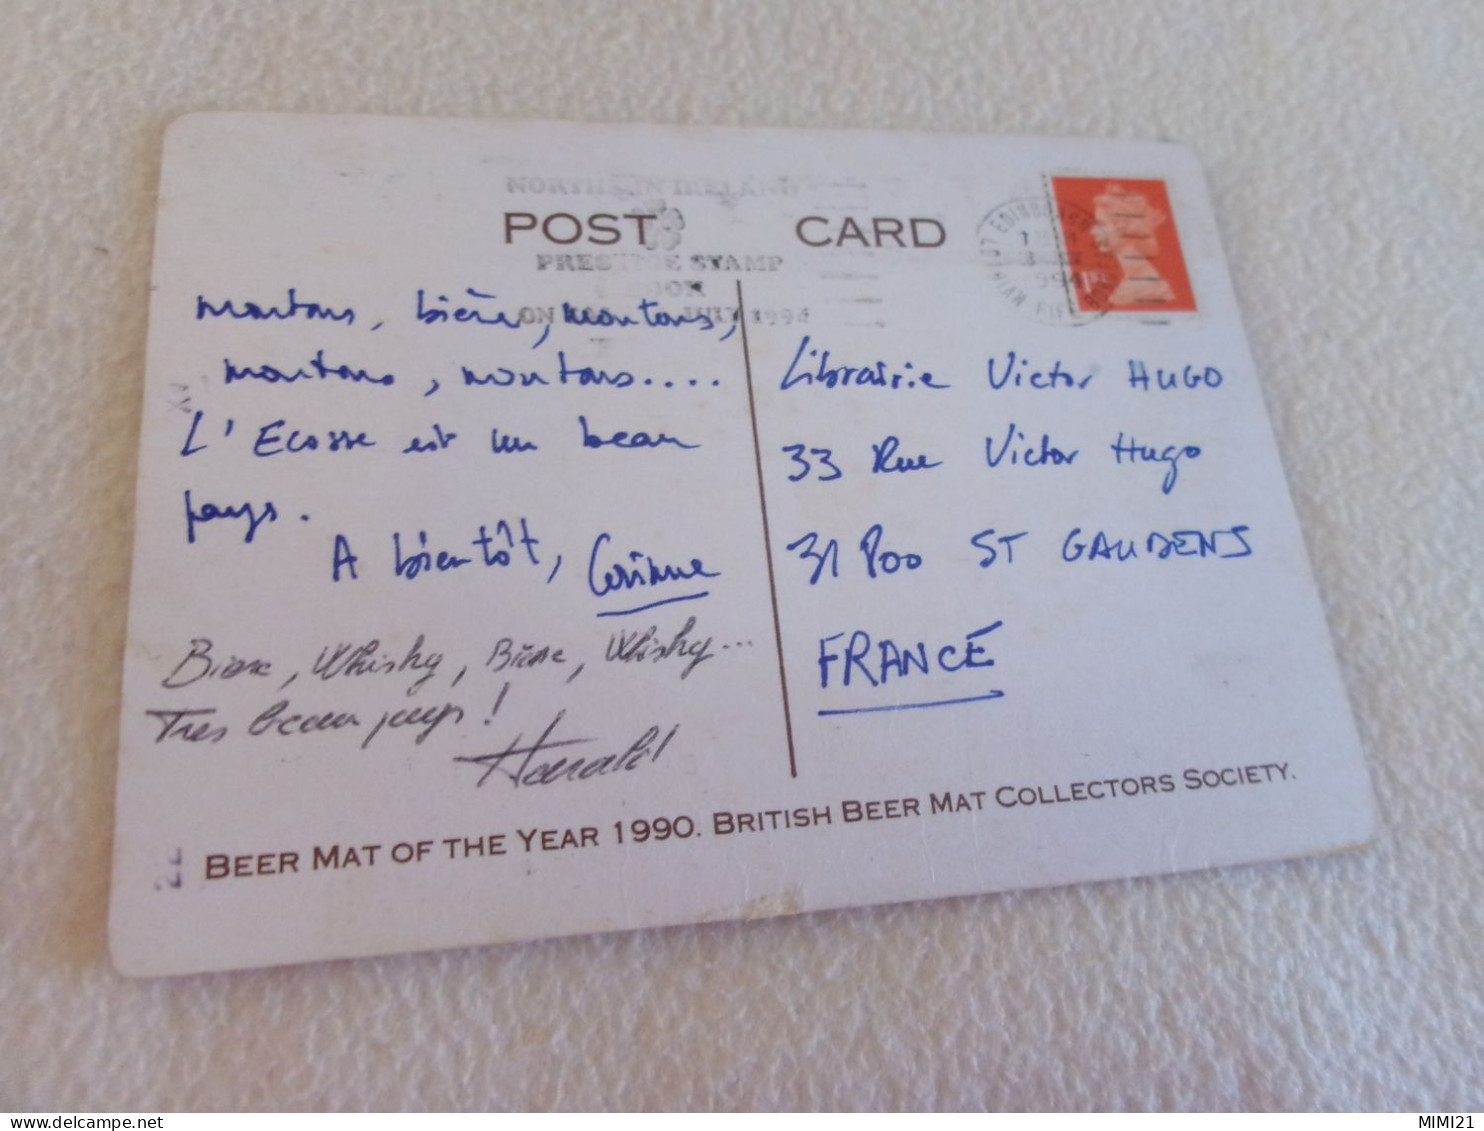 NORTHERN IRELAND
POST CARD
PRESTIGE STAMP
BOOK
ON JULY 1994
EDINBURGH
1994
FIFE
1ST
moutons, bière, moutons,
moutons, moutons....
L'Ecosse est un beau
pays.
A bientôt, Corinne
Biere, Whisky, Biere, Whisky...
Tres beau pays!
Harald
Librairie Victor HUGO
33 Rue Victor Hugo
31 800 ST GAUDENS
FRANCE
BEER MAT OF THE YEAR 1990. BRITISH BEER MAT COLLECTORS SOCIETY.
22
MIMI21